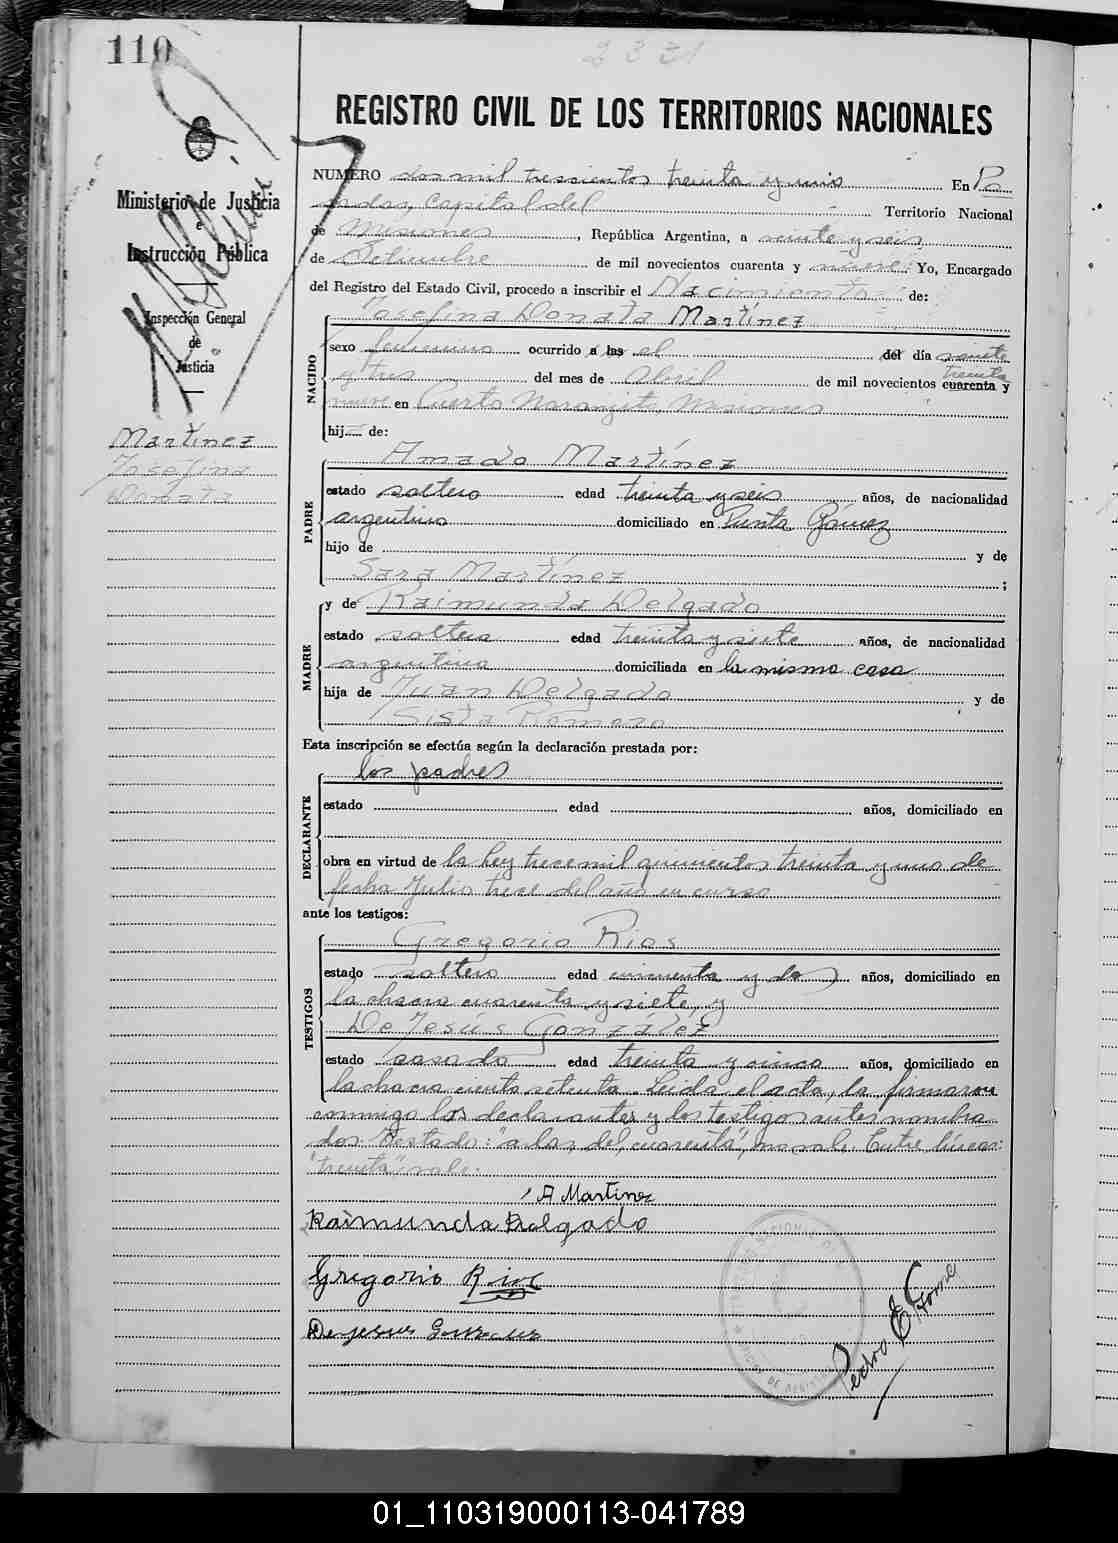 110
2331
REGISTRO CIVIL DE LOS TERRITORIOS NACIONALES
Ministerio de Justicia
e
Instrucción Pública
Inspección General
de
Justicia
Martínez
Josefina
Donata
NUMERO dos mil trescientos treinta y uno En Po
sadas, Capital del Territorio Nacional
de Misiones, República Argentina, a veinte y seis
de Setiembre de mil novecientos cuarenta y nueve. Yo, Encargado
del Registro del Estado Civil, procedo a inscribir el Nacimiento de:
Josefina Donata Martínez
NACIDO
sexo femenino ocurrido a las el del día veinte
y tres del mes de Abril de mil novecientos cuarenta treinta y
nueve en Puerto Naranjito, Misiones
hij de:
Amado Martínez
PADRE
estado soltero edad treinta y seis años, de nacionalidad
argentino domiciliado en Punta Gómez
hijo de y de
Sara Martínez ;
y de Raimunda Delgado
MADRE
estado soltera edad treinta y siete años, de nacionalidad
argentina domiciliada en la misma casa
hija de Juan Delgado y de
Sista Romero
Esta inscripción se efectúa según la declaración prestada por:
los padres
DECLARANTE
estado edad años, domiciliado en
obra en virtud de la Ley trece mil quinientos treinta y uno de
fecha Julio trece del año en curso
ante los testigos:
Gregorio Rios
TESTIGOS
estado soltero edad cincuenta y dos años, domiciliado en
la chacra cuarenta y siete, y
De Jesús González
estado casado edad treinta y cinco años, domiciliado en
la chacra ciento setenta. Leida el acta, la firmaron
conmigo los declarantes y los testigos antes nombra
dos. Testado: "a las, del, cuarenta", no vale. Entre líneas:
"treinta", vale.
A Martinez
Raimunda Delgado
Gregorio Rios
Dejesus Gonzalez
Pedro E Gome
01_110319000113-041789